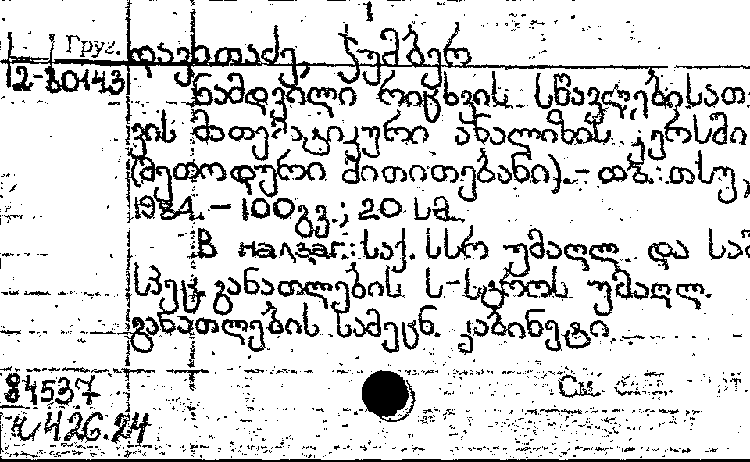 1
Груз. დავითაძე, ჯუმბერ
12-80143
ნამდვილი რიცხვის სწავლებისათ-
ვის მათემატიკური ანალიზის კურსში
(მეთოდური მითითებანი).– თბ.: თსუ,
1984.– 100 გვ.; 20 სმ.
В надзаг.: საქ. სსრ უმაღლ. და საშ.
სპეც. განათლების ს-სტროს უმაღლ.
განათლების სამეცნ. კაბინეტი
84537
См.
и 426.24